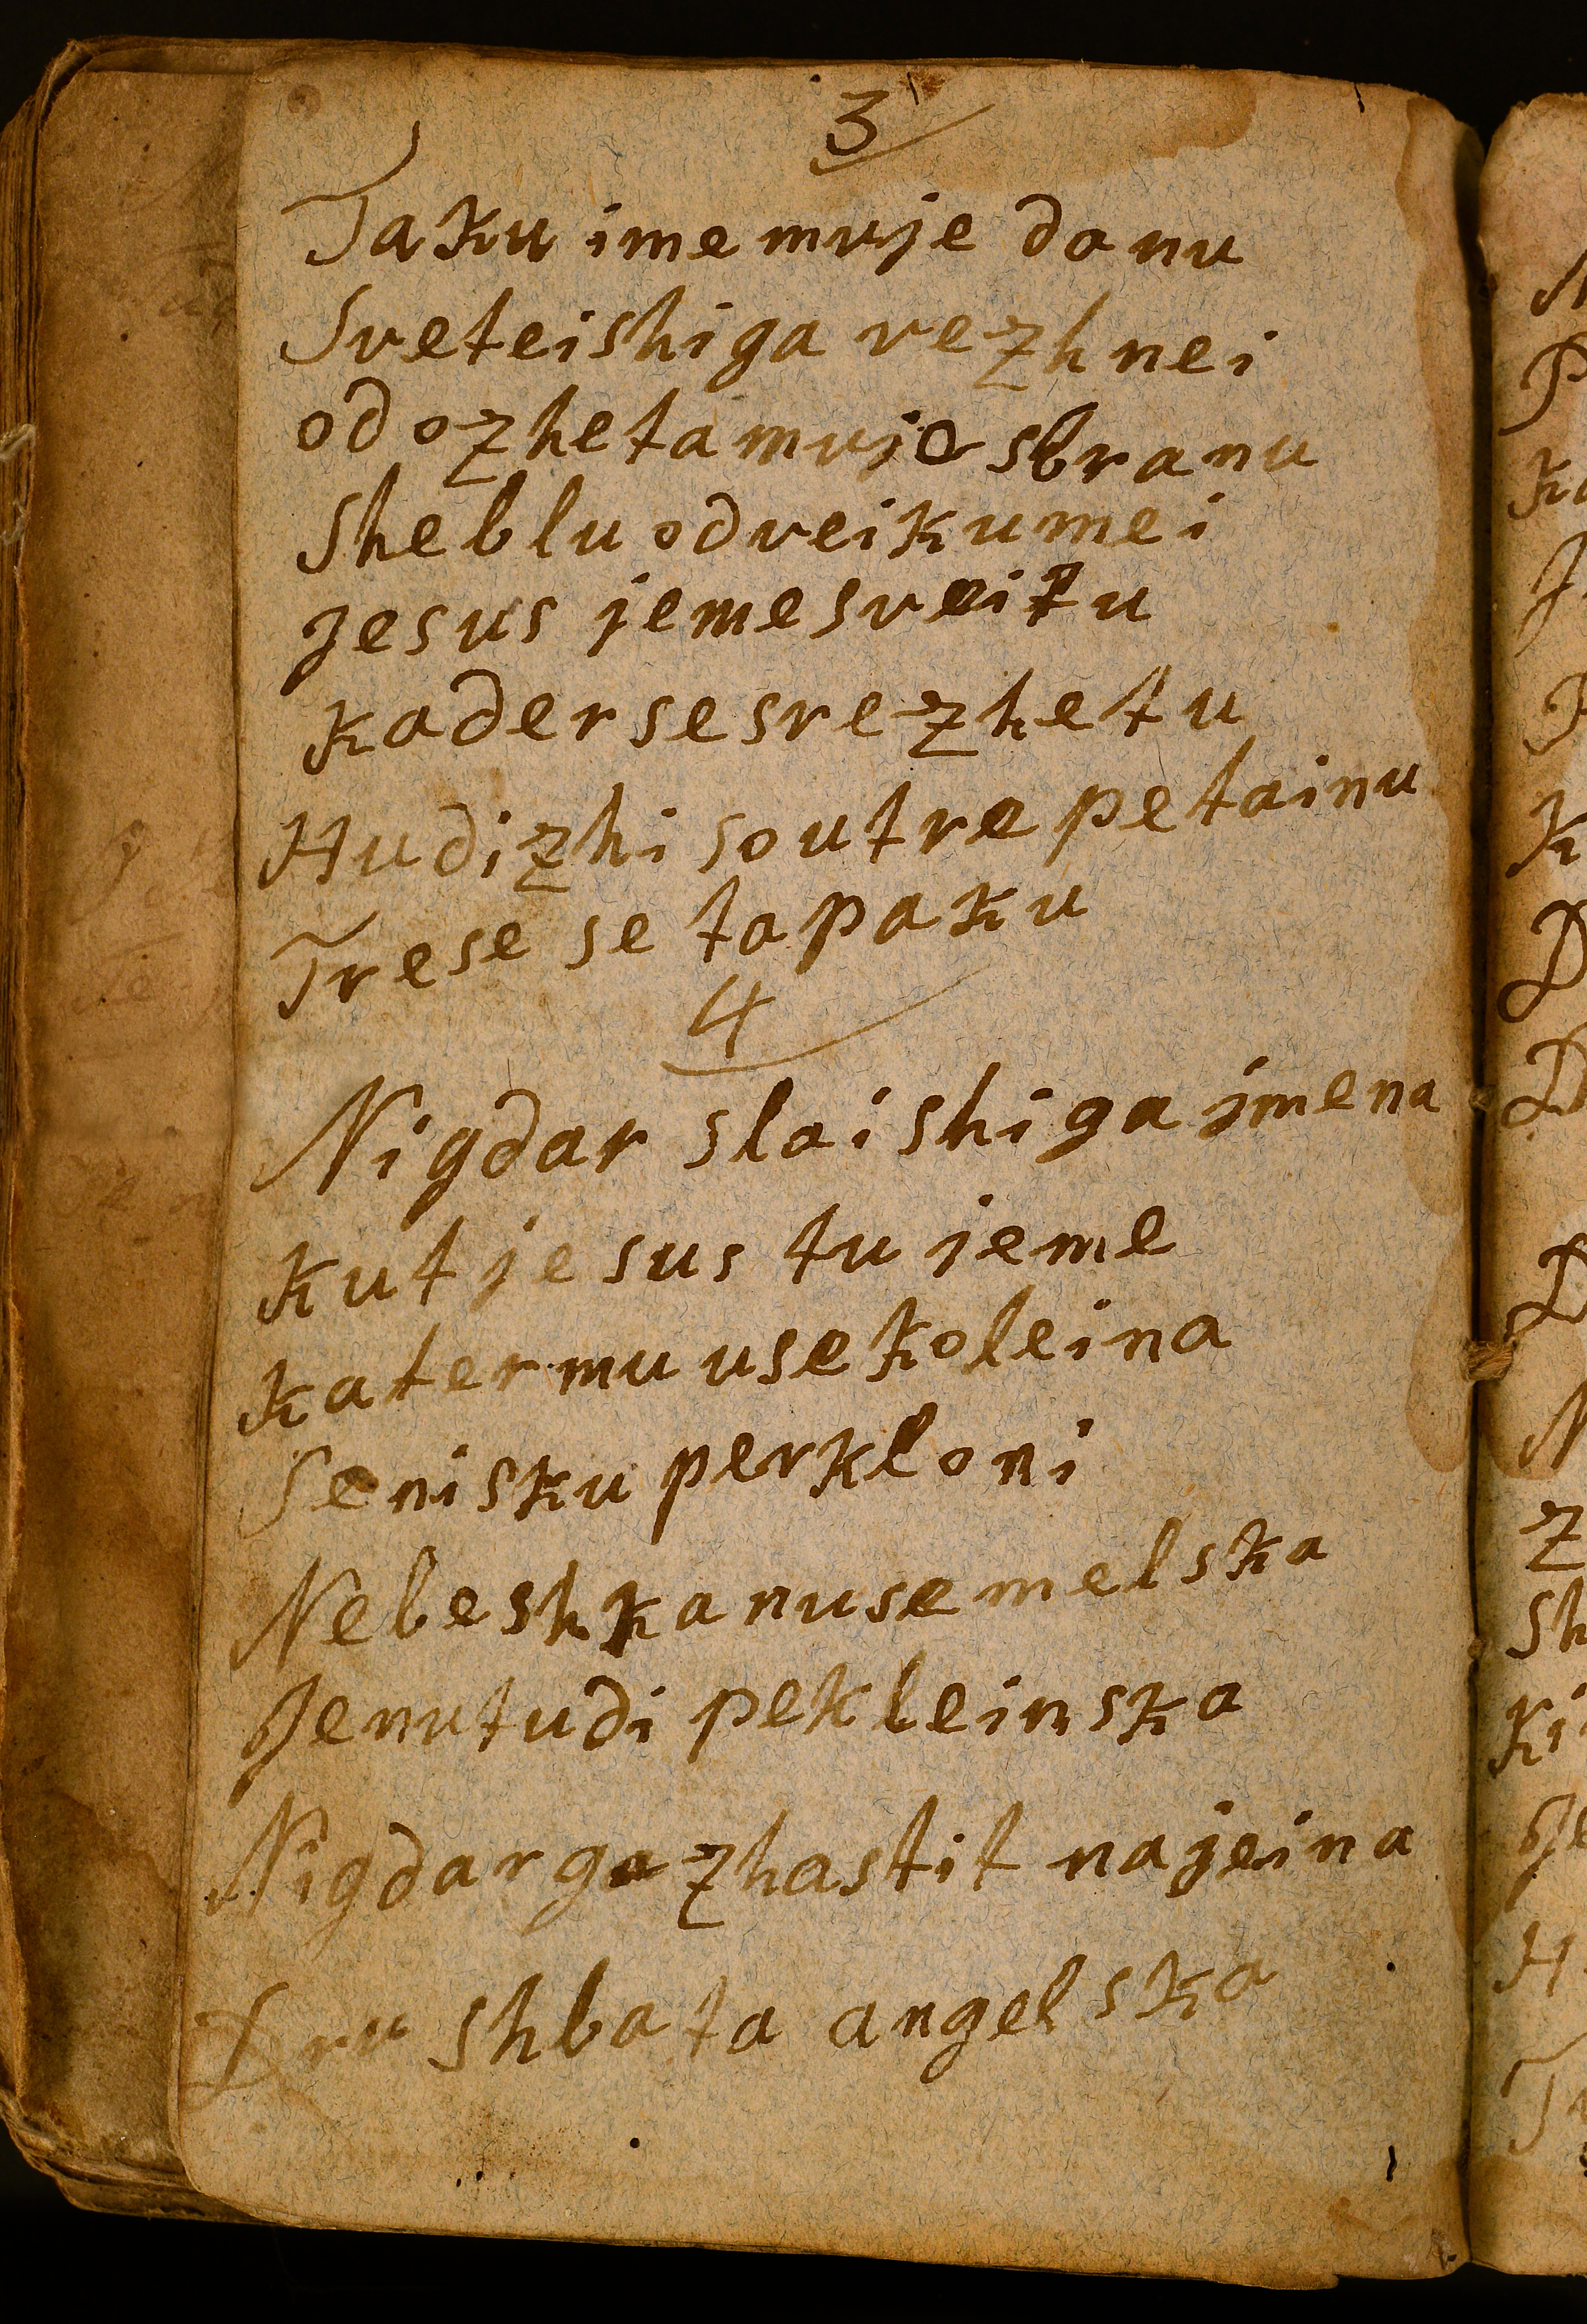 3
Taku ime mu je danu
Sveteishiga vezhnei
od ozheta mu je sbranu
Sheblu odveikumei
Jesus jeme sveitu
kader se srezhetu
Hudizhi so utrepetainu
Trese se ta paku
4
Nigdar slaishiga jmena
kut jesus tu jeme
kater mu use koleina
Se nisku perkloni
Nebeshka nu semelska
Jenu tudi pekleinska
Nigdar ga zhastit najeina
Drushba ta angelska